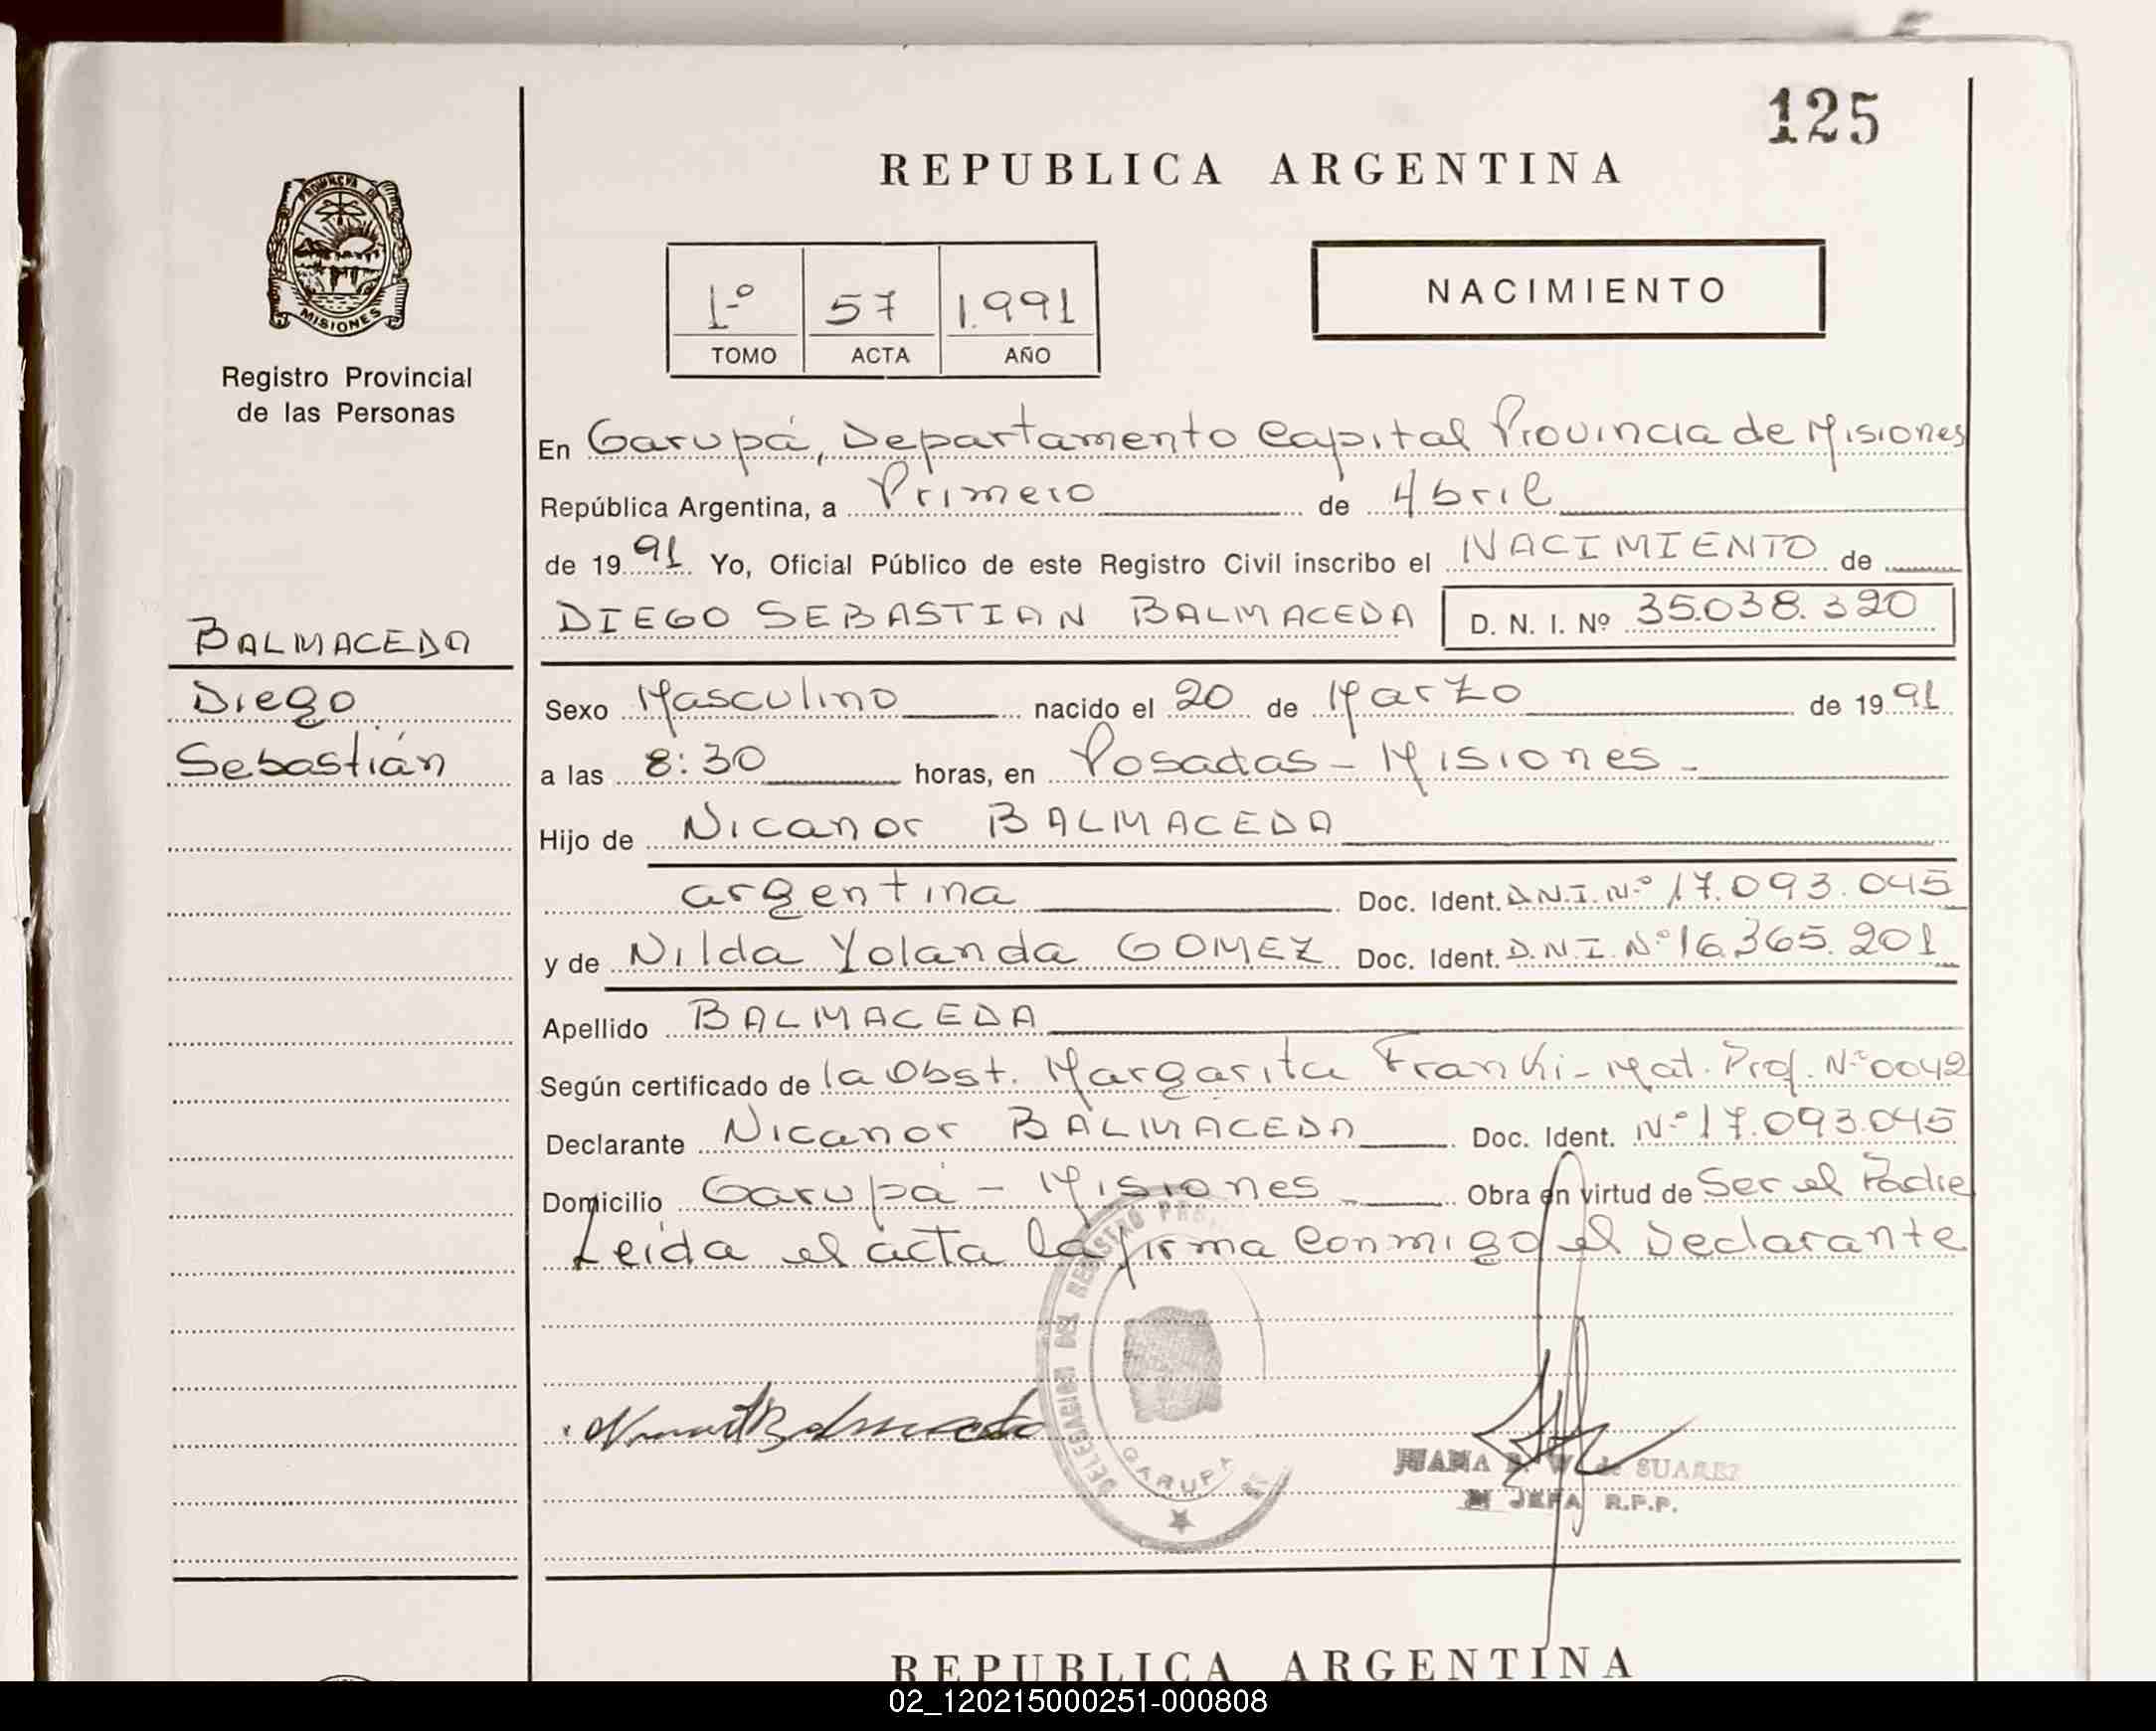 125
REPUBLICA ARGENTINA
PROVINCIA DE
MISIONES
Registro Provincial
de las Personas
1º 57 1.991
TOMO ACTA AÑO
NACIMIENTO
En Garupá, Departamento Capital Provincia de Misiones
República Argentina, a Primero de Abril
de 1991 Yo, Oficial Público de este Registro Civil inscribo el NACIMIENTO de
DIEGO SEBASTIAN BALMACEDA D. N. I. Nº 35.038.320
BALMACEDA
Diego
Sebastián
Sexo Masculino nacido el 20 de Marzo de 1991
a las 8:30 horas, en Posadas - Misiones -
Hijo de Nicanor BALMACEDA
argentina Doc. Ident. D.N.I. Nº 17.093.045
y de Nilda Yolanda GOMEZ Doc. Ident. D.N.I. Nº 16.365.201
Apellido BALMACEDA
Según certificado de la Obst. Margarita Franki - Mat. Prof. Nº 0042
Declarante Nicanor BALMACEDA Doc. Ident. Nº 17.093.045
Domicilio Garupá - Misiones - Obra en virtud de Ser el Padre
Leída el acta la firma conmigo el Declarante
DELEGACION DEL REGISTRO
GARUPA
JUANA W de SUAREZ
JEFA R.P.P.
REPUBLICA ARGENTINA
02_120215000251-000808